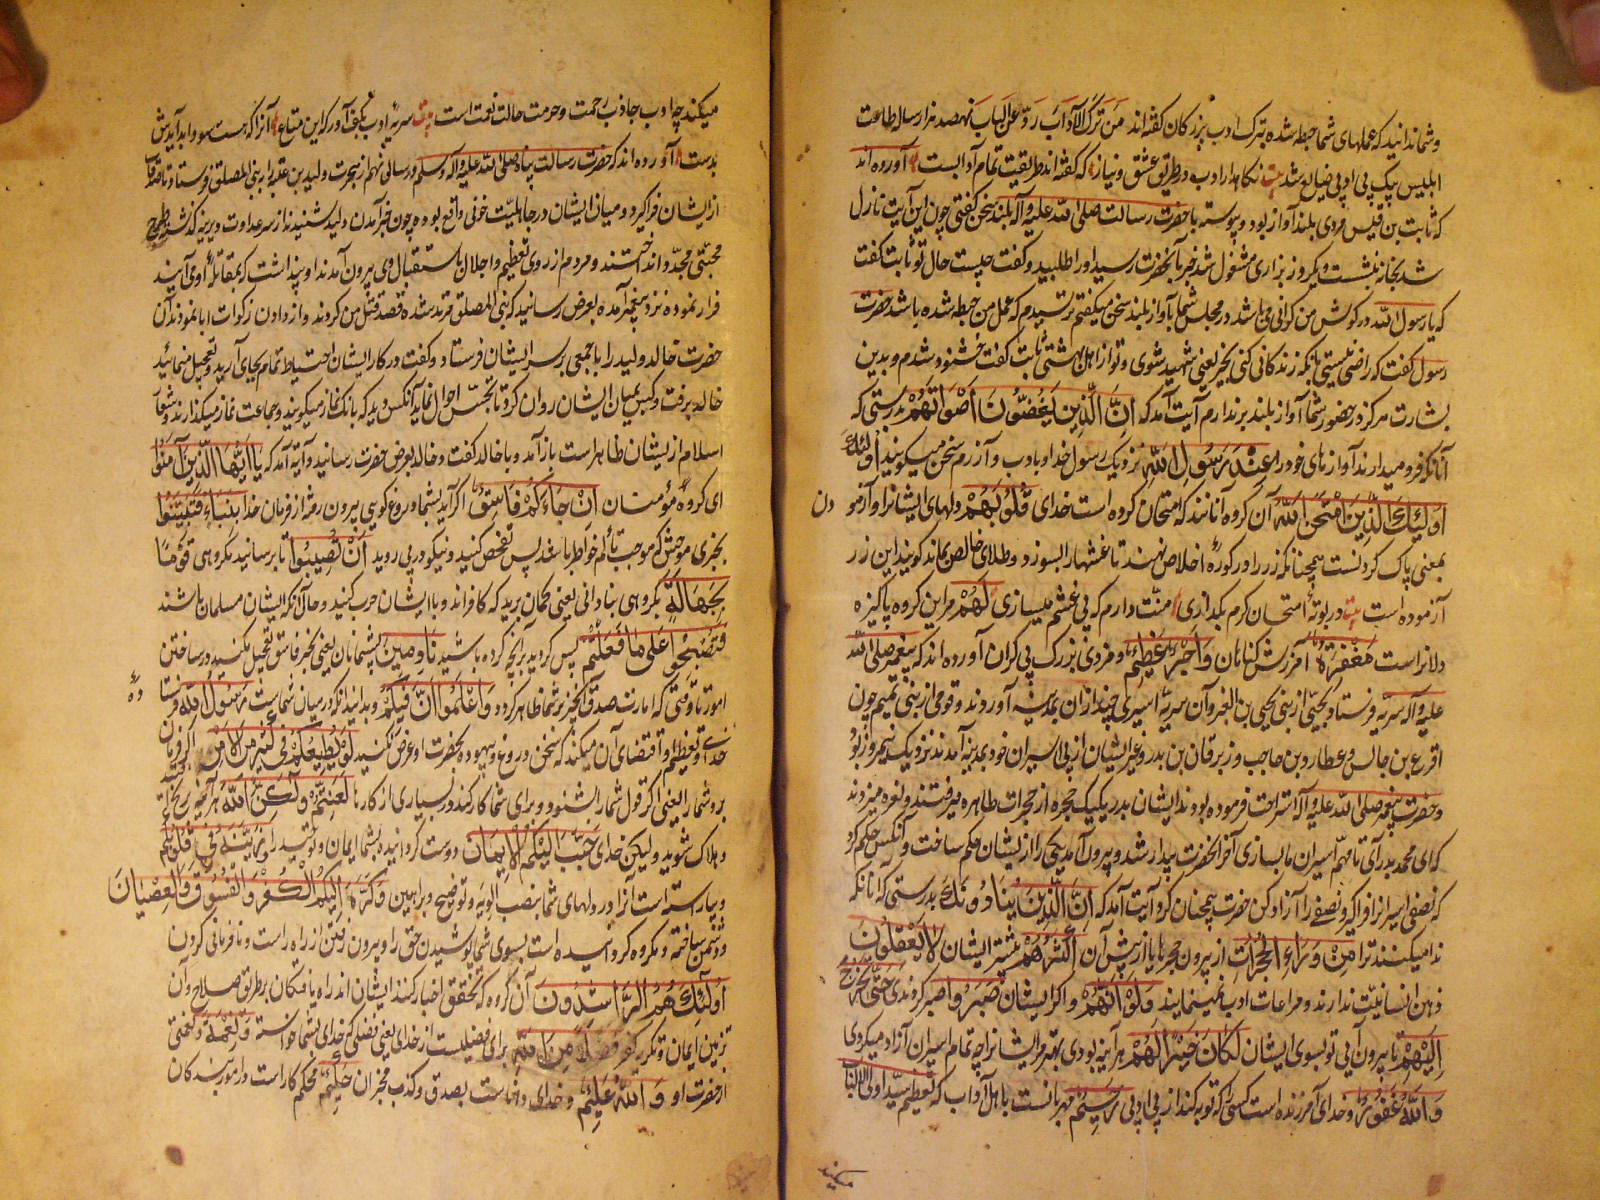 و شما ندانید که عملهای شما حبط شده بترک ادب بزرکان کفته اند من ترک الآداب رد عن الباب نهصد هزار ساله طاعت
ابلیس بیک بی ادبی ضایع شد بیت نکاهدار ادب در طریق عشق و نیاز که کفته اند طریقت تمام آدابست آورده اند
که ثابت بن قیس مردی بلند آواز بود و پیوسته با حضرت رسالت صلی الله علیه و آله بلند سخن کفتی چون این آیت نازل
شد بخانه بنشست و بکریه و زاری مشغول شد خبر بآنحضرت رسید او را طلبید و کفت چیست حال تو ثابت کفت
که یا رسول الله در کوش من کرانی می باشد و در مجلس شما بآواز بلند سخن میکفتم ترسیدم که عمل من حبط شده باشد حضرت
رسول کفت که راضی نیستی بآنکه زندکانی کنی بخیر یعنی شهید شوی و تو از اهل بهشتی ثابت کفت خشنود شدم و بدین
بشارت هرکز در حضور شما آواز بلند برندارم آیت آمد که ان الذین یغضون اصواتهم بدرستی که
آنانکه فرو میدارند آوازهای خود را عند رسول الله نزدیک رسول خدا و با ادب و آزرم سخن میکویند اولئک
اولئک الذین امتحن الله آن کروه آنانند که امتحان کرده است خدای قلوبهم دلهای ایشانرا و آزمو دن
بمعنی پاک کردنست همچنانکه زر را در کوره اخلاص نهند تا غشهار البسوزد و طلای خالص بماند کویند این زر
آزموده است بیت در بوته امتحان کرم بکدازی منت دارم که بی غشم میسازی لهم مر این کروه پاکیزه
دلانراست مغفرة آمرزش کناهان و اجر عظیم و مزدی بزرک بی کران آورده اند که پیغمبر صلی الله
علیه و آله سریه فرستاد بحی از بنی یحیی بن العنبر و آن سریه اسیری چند ازان بمدینه آوردند و قومی از بنی تمیم چون
اقرع بن حابس و عطارد بن حاجب و زبرقان بن بدر و غیر ایشان از پی اسیران خود بمدینه آمدند نزدیک نیمروز بود
و حضرت پیغمبر صلی الله علیه و آله استراحت فرموده بودند ایشان بدر یک یک حجره از حجرات طاهره میرفتند و نعره میزدند
که ای محمد بدر آی تا مهم اسیران ما بسازی آخر آنحضرت بیدار شد و بیرون آمد یکی را از ایشان حکم ساخت و آنکس حکم کرد
که نصفی اسیرانرا فدا کیر و نصفی را آزاد کن حضرت همچنان کرد آیت آمد که ان الذین ینادونک بدرستی که آنانکه
ندا میکنند ترا من وراء الحجرات از بیرون حجرها یا از پیش آن اکثرهم بیشتر ایشان لا یعقلون
ذهن انسانیت ندارند و مراعات ادب نمینمایند و لو انهم و اکر ایشان صبروا صبر کردندی حتی تخرج
الیهم تا بیرون آیی تو بسوی ایشان لکان خیرا لهم هر آینه بودی بهتر مر ایشانرا چه تمام اسیران آزاد میکردی
و الله غفور و خدای آمرزنده است کسی را که توبه کند از بی ادبی رحیم مهربانست با اهل آداب که تعظیم سید اولی الالباب
میکنند
میکند چه ادب جاذب رحمت و حرمت جالب نعمت است بیت سرمایه ادب بکف آور که این متاع آنرا که هست سود ابد آیدش
بدست آورده اند که حضرت رسالت پناه صلی الله علیه و آله و سلم در سال نهم از هجرت ولید بن عقبه را ببنی المصطلق فرستاد تا صدقات
از ایشان فرا کیرد و میان ایشان در جاهلیت خونی واقع بوده چون خبر آمدن ولید شنیدند از سر عداوت دیرینه کذشته طرح
محبتی مجدد انداختند و مردم از روی تعظیم و اجلال باستقبال وی بیرون آمدند او پنداشت که بمقاتله او می آیند
فرار نموده نزد پیغمبر آمده بعرض رسانید که بنی المصطلق مرتد شده قصد قتل من کردند و از دادن زکوات ابا نمودند آن
حضرت خالد ولید را با جمعی بر سر ایشان فرستاد و کفت در کار ایشان احتیاط تمام بجای آرید و تعجیل منمائید
خالد برفت و کس بمیان ایشان روان کرد تا تجسس احوال نماید آنکس دید که بانک نماز میکویند و جماعت نماز میکذارند و شعار
اسلام از ایشان ظاهر است باز آمد و با خالد کفت و خالد بعرض حضرت رسانید و آیه آمد که یا ایها الذین آمنوا
ای کروه مؤمنان ان جاءکم فاسق اکر آید بشما دروغ کویی بیرون رفته از فرمان خدا بنباء فتبینوا
بخبری موحش که موجب تألم خواطر باشد پس تفحص کنید و نیکو در پی روید ان تصیبوا تا برسانید مکروهی قوما
بجهالة بکروهی بنادانی یعنی کمان برید که کافرند و با ایشان حرب کنید و حال آنکه ایشان مسلمان باشند
فتصبحوا علی ما فعلتم پس کردید بر آنچه کرده باشید نادمین پشیمانان یعنی بخبر فاسق تعجیل مکنید در ساختن
امور تا وقتی که امارت صدق آن خبر بر شما ظاهر کردد و اعلموا ان فیکم و بدانید آنکه در میان شماست رسول الله فرستا ده
خدای و تعظیم او اقتضای آن میکند که سخن دروغ و بیهوده بحضرت او عرض نکنید لو یطیعکم فی کثیر من الامر اکر فرمان
برد شما را یعنی اکر قول شما را شنود و برای شما کار کند در بسیاری از کارها لعنتم و لکن الله هر آینه در رنج افتید
و هلاک شوید و لیکن خدای حبب الیکم الایمان دوست کردانیده بشما ایمان و توحید را و زینه فی قلوبکم
و بیاراسته است آنرا در دلهای شما بنصب الویه و توضیح و براهین و کره الیکم الکفر و الفسوق و العصیان
و دشمن ساخته و مکروه کردانیده است بسوی شما پوشیدن حق را و بیرون رفتن از راه راست و نافرمانی کردن
اولئک هم الراشدون آن کروه که تحقق اخبار کنند ایشان اند راه یافتکان بر طریق صلاح و آن
تزیین ایمان و تکریه کفر فضلا من الله برای فضیلیست از خدای یعنی فضلی که خدای بشما خواسته و نعمة و نعمتی
از حضرت او و الله علیم و خدای داناست بصدق و کذب مخبران حکیم محکم کار است در امور بندکان